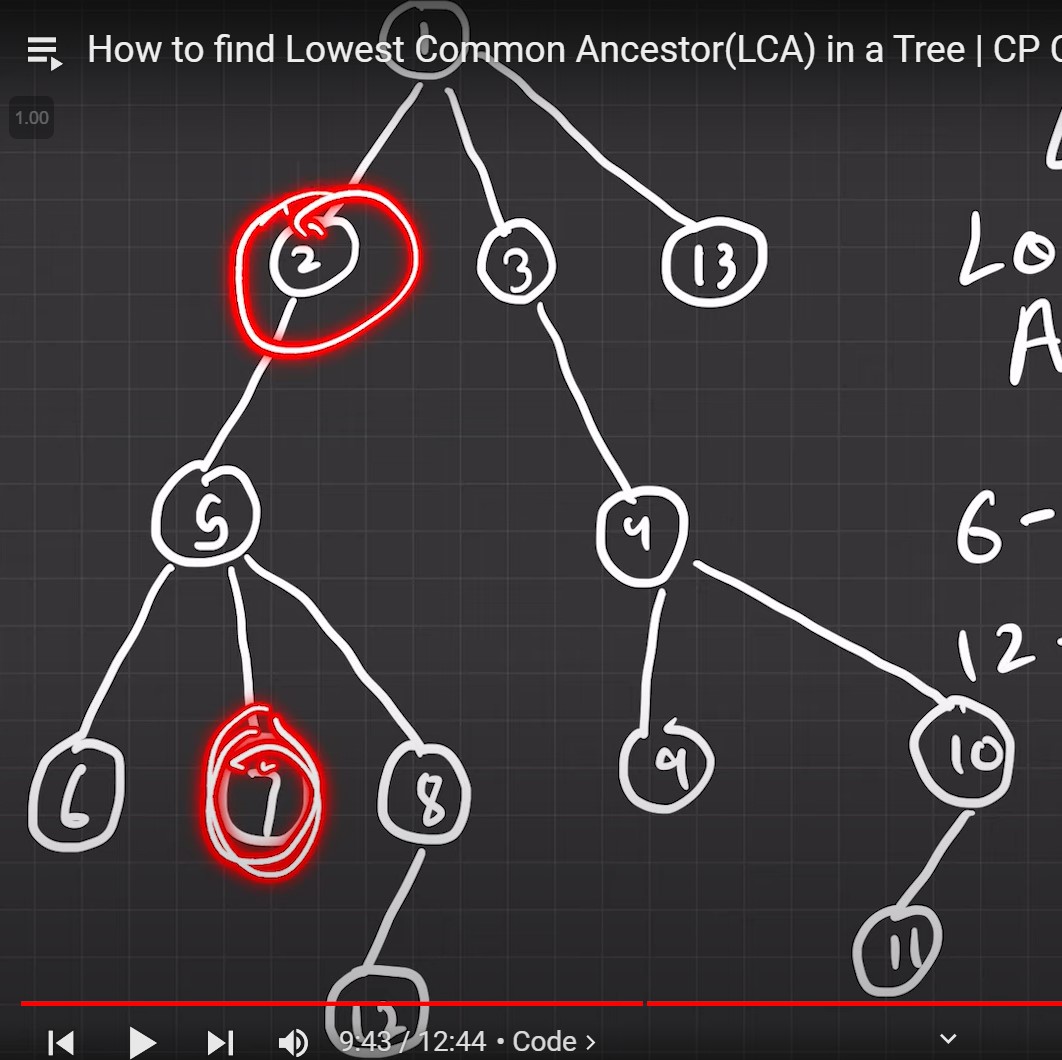 1
How to find Lowest Common Ancestor(LCA) in a Tree | CP
1.00
2 3 13
Lo
A
5 4
6 -
12
6 7 8 9 10
11
12
9:43 / 12:44 • Code >